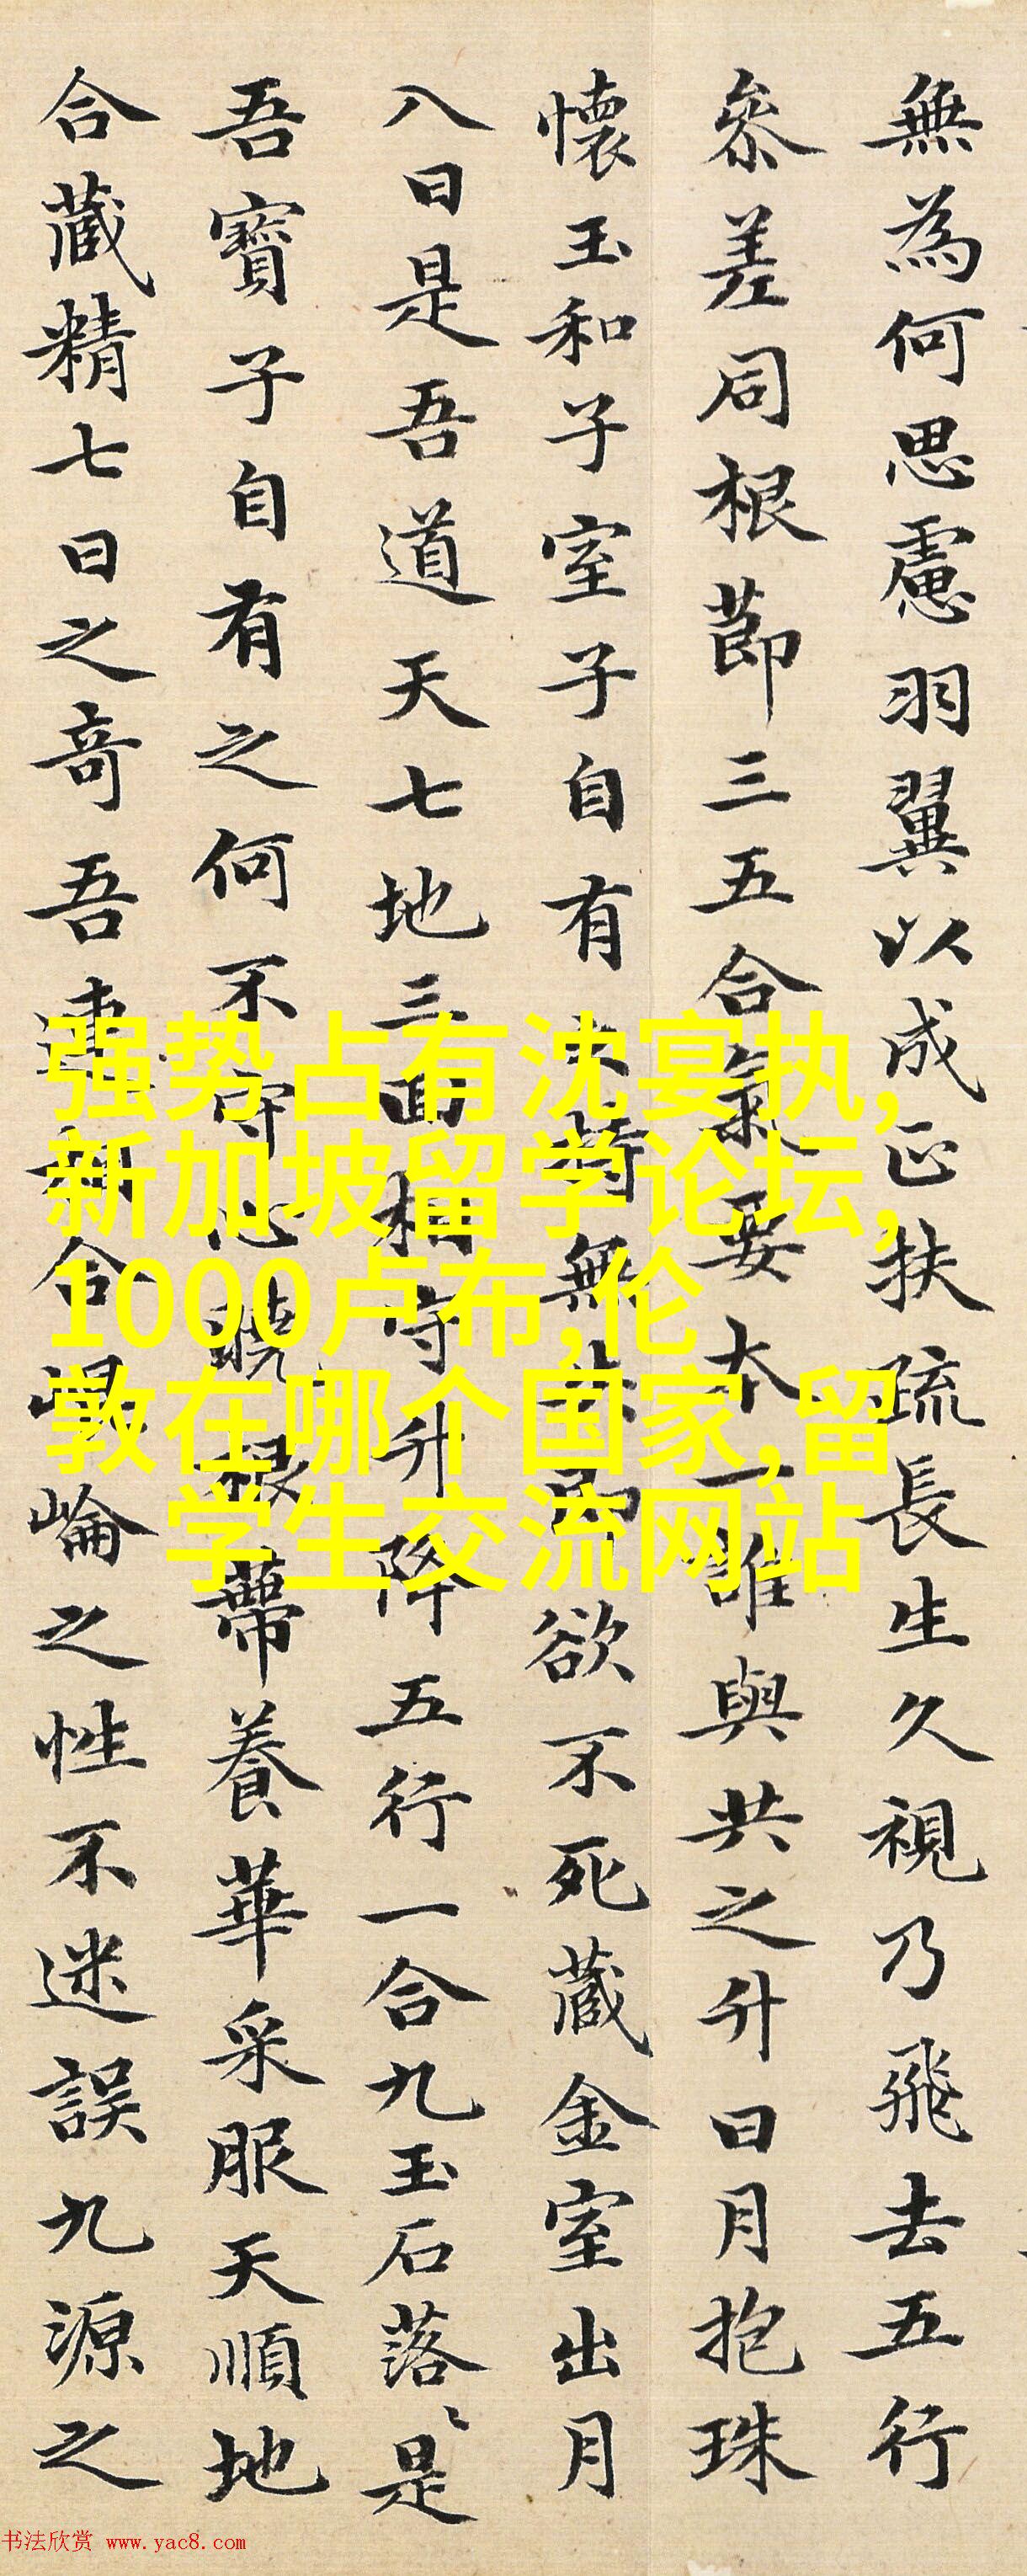 無為何思慮羽翼以成正扶疏長生久視乃飛去五行
參差同根莭三五合氣要本一誰與共之升日月抱珠
懷玉和子室子自有持無欲不死藏金室出月
八日是吾道天七地三回相守升降五行一合九玉石落〻是
吾寶子自有之何不守心曉根蔕養華采服天順地
合藏精七日之奇吾連相合崐崘之性不迷誤九源之
强势占有沈宴执,
新加坡留学论坛,
1000卢布,伦
敦在哪个国家,留
学生交流网站
书法欣赏 www.yac8.com